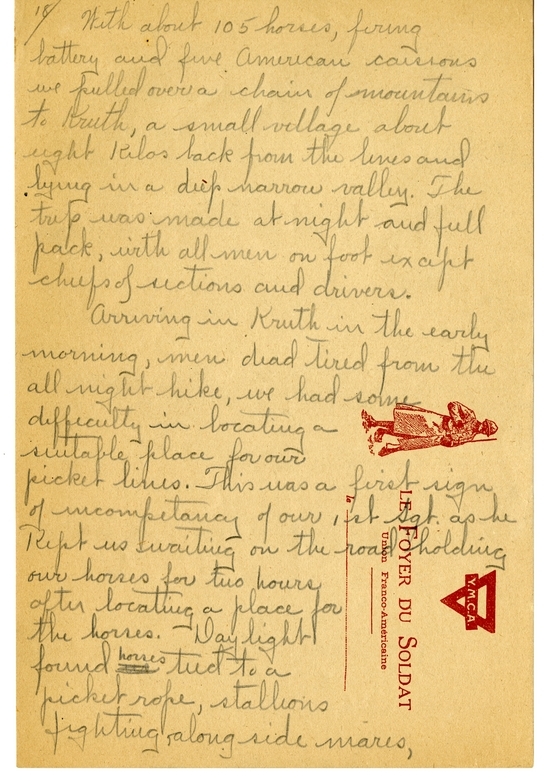 18/
With about 105 horses, firing
battery and five American caissons
we pulled over a chain of mountains
to Kruth, a small village about
eight Kilos back from the lines and
lying in a deep narrow valley. The
trip was made at night and full
pack, with all men on foot except
chiefs of sections and drivers.
Arriving in Kruth in the early
morning, men dead tired from the
all night hike, we had some
difficulty in locating a
suitable place for our
picket lines. This was a first sign
of incompetancy of our 1st Sgt. as he
Kept us waiting on the road holding
our horses for two hours
after locating a place for
the horses. Daylight
found horses tied to a
picket rope, stallions
fighting, along side mares,
LE FOYER DU SOLDAT
Union Franco-Américaine
le
Y.M.C.A.